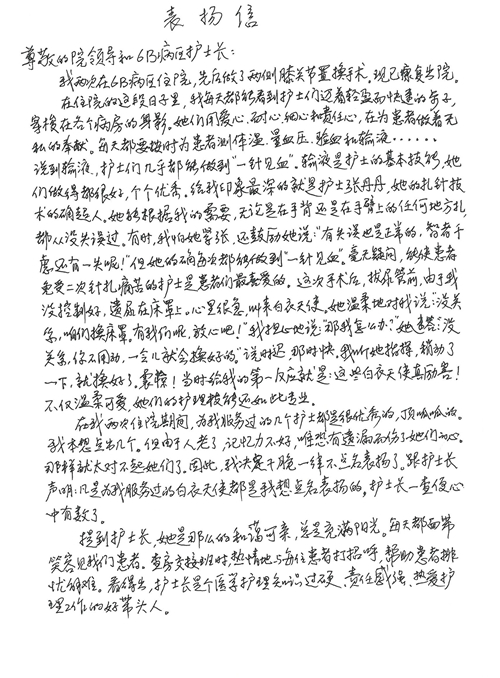 表扬信
尊敬的院领导和6B病区护士长:
我两次在6B病区住院,先后做了两侧膝关节置换手术。现已康复出院。
在住院的这段日子里,我每天都能看到护士们迈着轻盈而快速的步子,
穿梭在各个病房的身影。她们用爱心、耐心、细心和责任心,在为患者做着无
私的奉献。每天都要按时为患者测体温、量血压、验血和输液······
说到输液,护士们几乎都能做到“一针见血”。输液是护士的基本技能,她
们做得都很好,个个优秀。给我印象最深的就是护士张丹丹,她的扎针技
术的确超人。她能根据我的需要,无论是在手背还是在手臂上的任何地方扎,
都从没失误过。有时,我怕她紧张,还鼓励她说:“有失误也是正常的,智者千
虑还有一失呢!”但她的确每次都能做到“一针见血”。毫无疑问,能使患者
免受二次针扎痛苦的护士是患者们最喜爱的。这次手术后,拔尿管前,由于我
没控制好,遗尿在床罩上。心里很急,叫来白衣天使。她温柔地对我说:“没关
系,咱们换床罩。有我们呢,放心吧!”我担心地说:“那我怎么办?”她连答:“没
关系,你不用动,一会儿就会换好的。”说时迟,那时快,我听她指挥,稍动了
一下,就换好了。震撼!当时给我的第一反应就是:这些白衣天使真厉害!
不仅温柔可爱,她们的护理技能还如此专业。
在我两次住院期间,为我服务过的几个护士都是很优秀的,顶呱呱的。
我本想点出几个。但由于人老了,记忆力不好,唯恐有遗漏而伤了她们的心。
那样就太对不起她们了。因此,我决定干脆一律不点名表扬了。跟护士长
声明:凡是为我服务过的白衣天使都是我想点名表扬的。护士长一查便心
中有数了。
提到护士长,她是那么的和蔼可亲,总是充满阳光。每天都面带
笑容见我们患者。查房交接班时,热情地与每位患者打招呼,帮助患者排
忧解难。看得出,护士长是个医学护理知识过硬、责任感强、热爱护
理工作的好带头人。